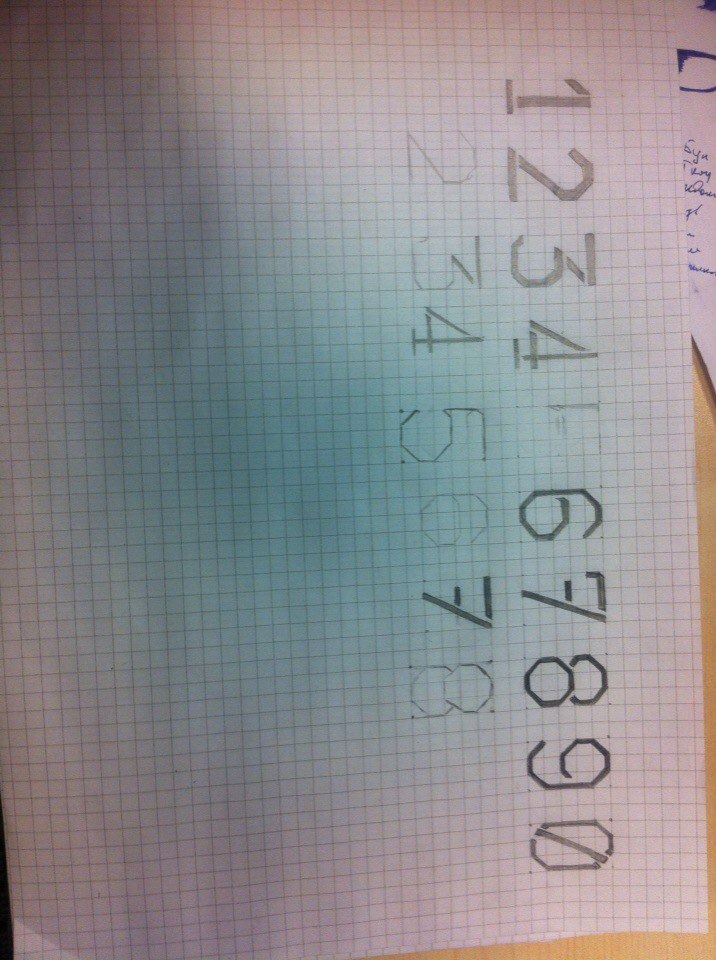 1 2 3 4 6 7 8 9 0
2 3 4 5 6 7 8